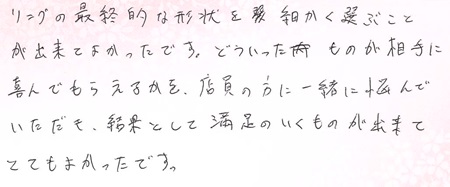 リングの最終的な形状を細かく選ぶこと
が出来てよかったです。どういったものが相手に
喜んでもらえるかを、店員の方に一緒に悩んで
いただき、結果として満足のいくものが出来て
とてもよかったです。